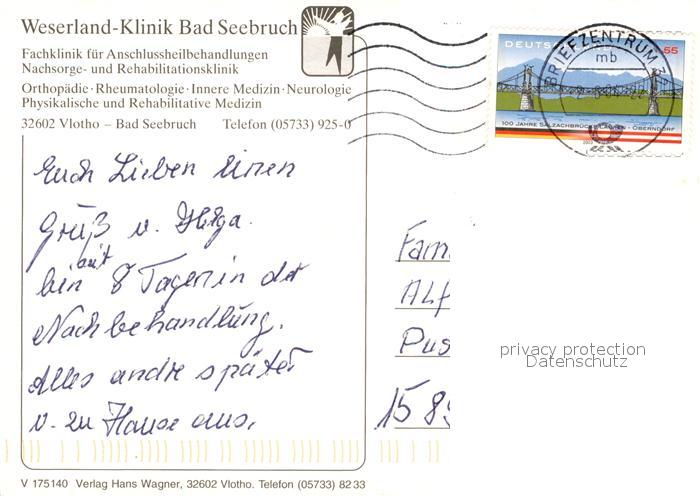 Weserland-Klinik Bad Seebruch
Fachklinik für Anschlussheilbehandlungen
Nachsorge- und Rehabilitationsklinik
Orthopädie · Rheumatologie · Innere Medizin · Neurologie
Physikalische und Rehabilitative Medizin
32602 Vlotho – Bad Seebruch Telefon (05733) 925-0
DEUTSCHLAND 55
BRIEFZENTRUM
mb
100 JAHRE SALZACHBRÜCKE LAUFEN - OBERNDORF
Euch Lieben einen
Gruß v. Helga.
bin seit 8 Tagen in der
Nachbehandlung.
Alles andre später
v. zu Hause aus.
Fam.
Alf
Pus
15 89
privacy protection
Datenschutz
V 175140 Verlag Hans Wagner, 32602 Vlotho. Telefon (05733) 82 33